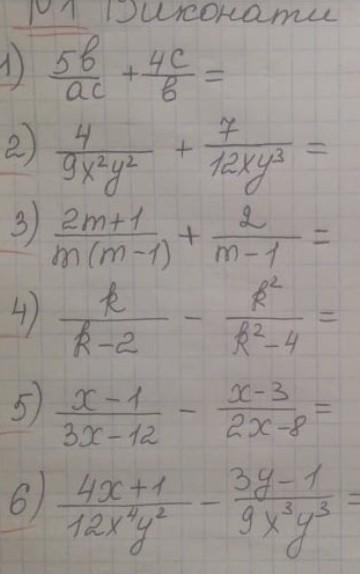 №1 Виконати
1) 5b/ac + 4c/b =
2) 4/9x²y² + 7/12xy³ =
3) 2m+1/m(m-1) + 2/m-1 =
4) k/k-2 - k²/k²-4 =
5) x-1/3x-12 - x-3/2x-8 =
6) 4x+1/12x⁴y² - 3y-1/9x³y³ =